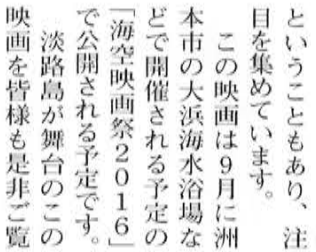 ということもあり、注
目を集めています。
この映画は9月に洲
本市の大浜海水浴場な
どで開催される予定の
「海空映画祭2016」
で公開される予定です。
淡路島が舞台のこの
映画を皆様も是非ご覧